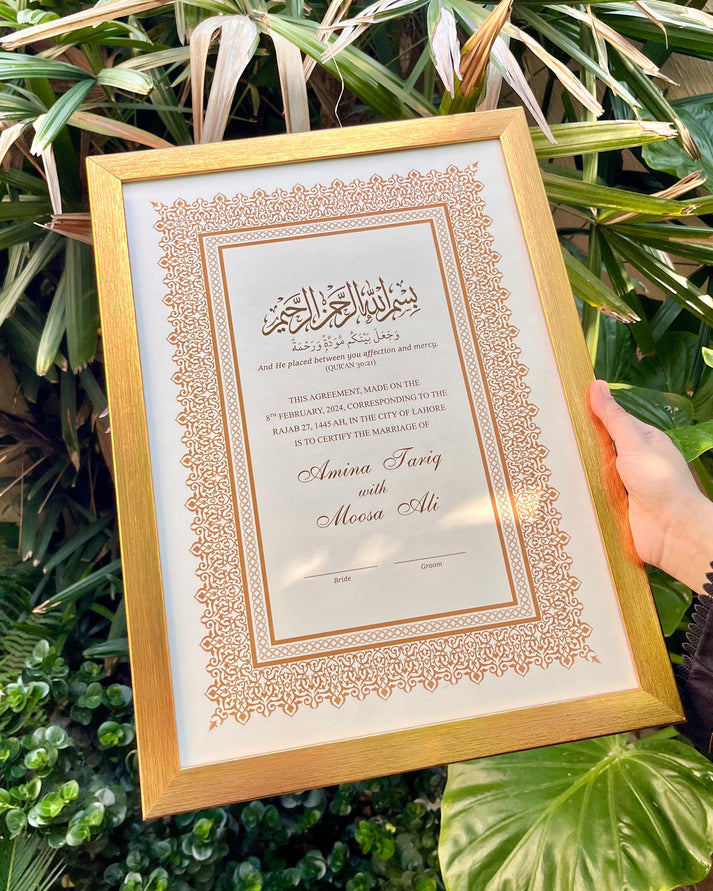 بِسْمِ اللهِ الرَّحْمٰنِ الرَّحِيْمِ
وَجَعَلَ بَيْنَكُم مَّوَدَّةً وَرَحْمَةً
And He placed between you affection and mercy.
(QUR'AN 30:21)
THIS AGREEMENT, MADE ON THE
8TH FEBRUARY, 2024, CORRESPONDING TO THE
RAJAB 27, 1445 AH, IN THE CITY OF LAHORE
IS TO CERTIFY THE MARRIAGE OF
Amina Tariq
with
Moosa Ali
Bride Groom